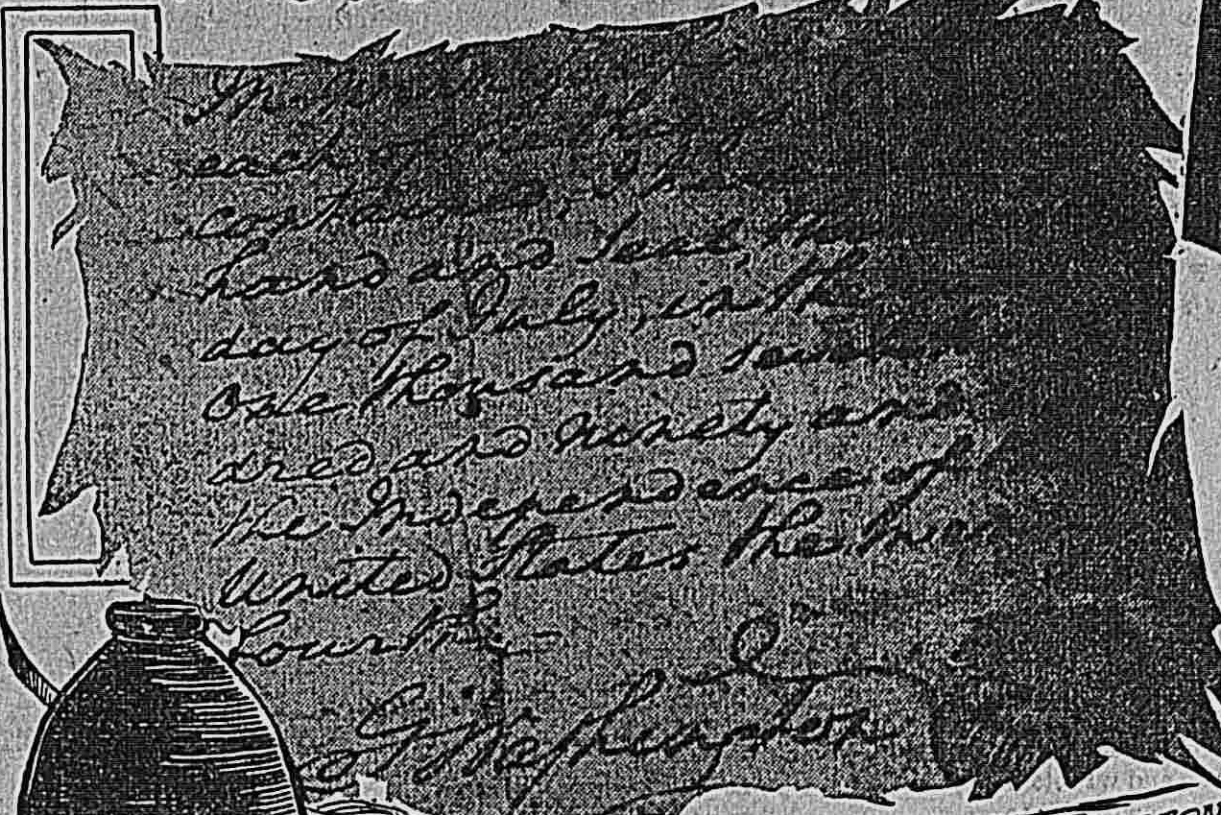 In
each of the things
contained, I have
hand and Seal, this
day of July, in the
One thousand seven
dred and ninety and
the Independence of
United States the twen
fourth
G Washington